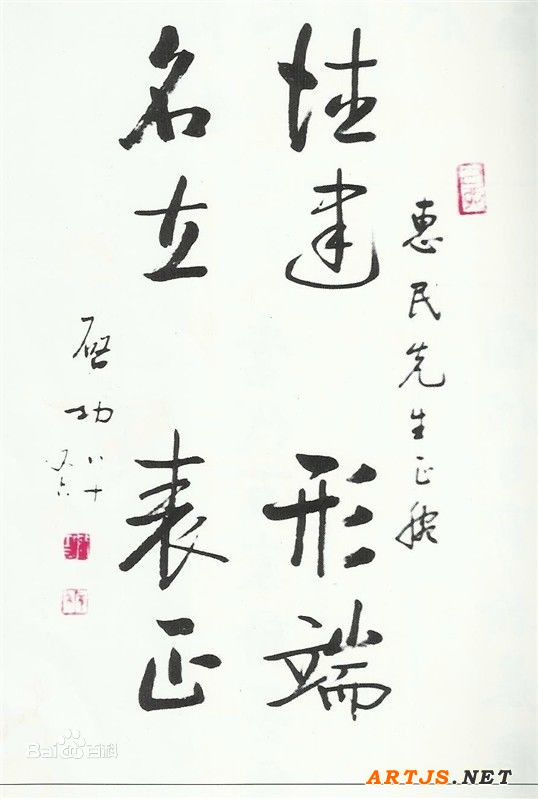 惠民先生正腕
德建 形端
名立 表正
启功 八十
又六
Bai百科
ARTJS.NET